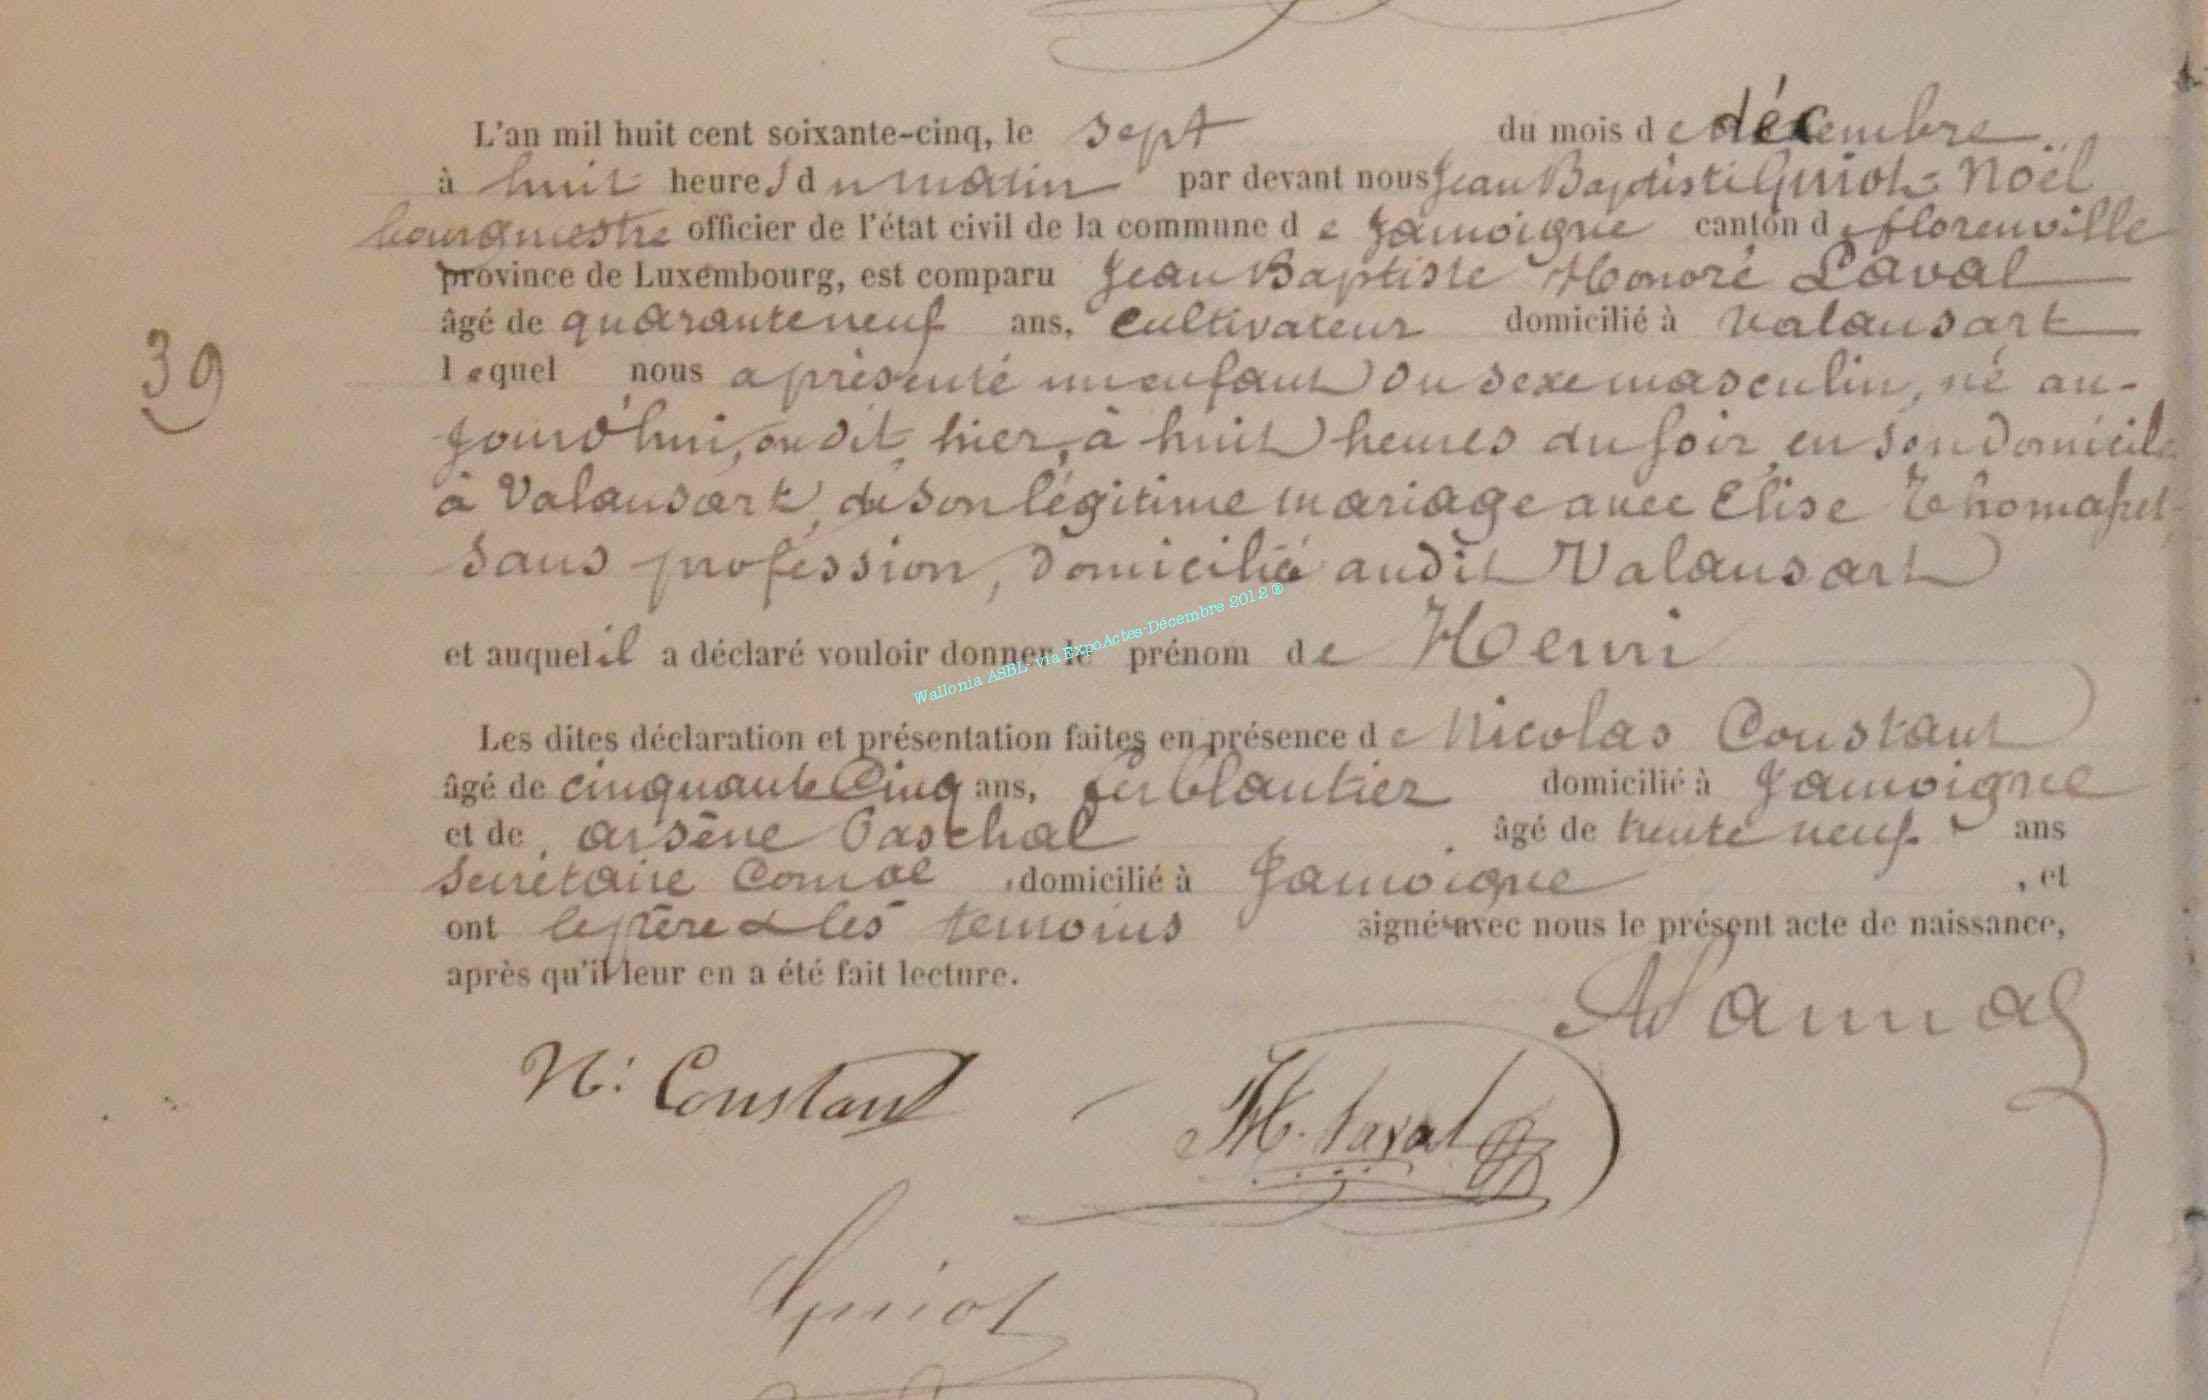 L'an mil huit cent soixante-cinq, le sept du mois de décembre
à huit heures du matin par devant nous Jean Baptiste Guiot Noël
bourgmestre officier de l'état civil de la commune de Jamoigne canton de florenville
province de Luxembourg, est comparu Jean Baptiste Honoré Laval
âgé de quaranteneuf ans, Cultivateur domicilié à Valansart
39
lequel nous a présenté un enfant du sexe masculin, né au-
jourd'hui, ou dit, hier, à huit heures du soir en son domicile
à Valansart, de son légitime mariage avec Elise
sans profession, domicilié audit Valansart
et auquel il a déclaré vouloir donner le prénom de Henri
Wallonia ASBL via ExpoActes-Décembre 2012 ®
Les dites déclaration et présentation faites en présence de Nicolas Constant
âgé de cinquante Cinq ans, ferblantier domicilié à Jamoigne
et de arsène Paschal âgé de trente neuf ans
secrétaire Comal domicilié à Jamoigne, et
ont le père & les témoins signé avec nous le présent acte de naissance,
après qu'il leur en a été fait lecture.
N: Constant
H. Laval
Guiot